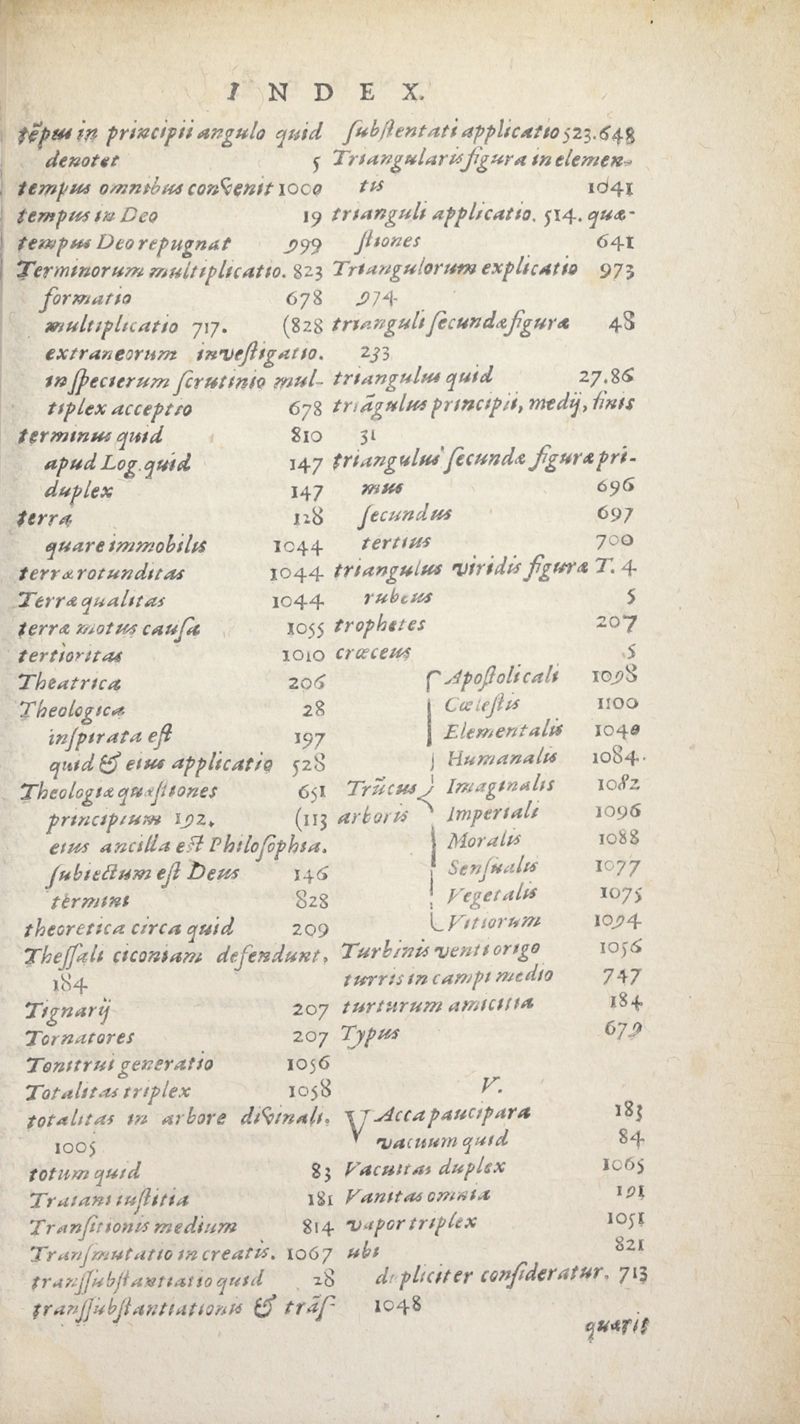 INDEX.
tēpus in principii angulo quid
denotet 5
tempus omnibus conuenit 1000
tempus in Deo 19
tempus Deo repugnat 999
Terminorum multiplicatio. 823
formatio 678
multiplicatio 717. (828
extraneorum inuestigatio.
inspecierum scrutinio mul-
tiplex acceptio 678
terminus quid 810
apud Log. quid 147
duplex 147
terra 128
quare immobilis 1044
terræ rotunditas 1044
Terræ qualitas 1044
terræ motus causa 1055
tertioritas 1010
Theatrica 206
Theologica 28
inspirata est 197
quid & eius applicatio 528
Theologiæ quæstiones 651
principium 192. (113
eius ancilla est Philosophia.
subiectum est Deus 146
termini 828
theoretica circa quid 209
Thessali ciconiam defendunt,
184
Tignarij 207
Tornatores 207
Tonitrui generatio 1056
Totalitas triplex 1058
totalitas in arbore diuinali,
1005
totum quid 83
Traiani iustitia 181
Transitionis medium 814
Transmutatio in creatis. 1067
transsubstantiatio quid 28
transsubstantiationis & trās-
substentati applicatio 523.648
Triangularis figura in elemen-
tis 1041
trianguli applicatio. 514. quæ-
stiones 641
Triangulorum explicatio 973
974
trianguli secundæ figuræ 48
233
triangulus quid 27.86
triāgulus principii, medij, finis
31
triangulus secundæ figuræ pri-
mus 696
secundus 697
tertius 700
triangulus viridis figuræ T. 4
rubeus 5
trophetes 207
croceus 5
Apostolicali 1098
Cœlestis 1100
Elementalis 1040
Humanalis 1084.
Trūcus Imaginalis 1082
arboris Imperiali 1096
Moralis 1088
Sensualis 1077
Vegetalis 1075
Vitiorum 1094
Turbinis venti origo 1056
turris in campi medio 747
turturum amicitia 184
Typus 679
V.
VAcca pauci para 183
vacuum quid 84
Vacuitas duplex 1065
Vanitas omnia 191
vapor triplex 1051
ubi 821
dupliciter consideratur. 713
1048
quatis